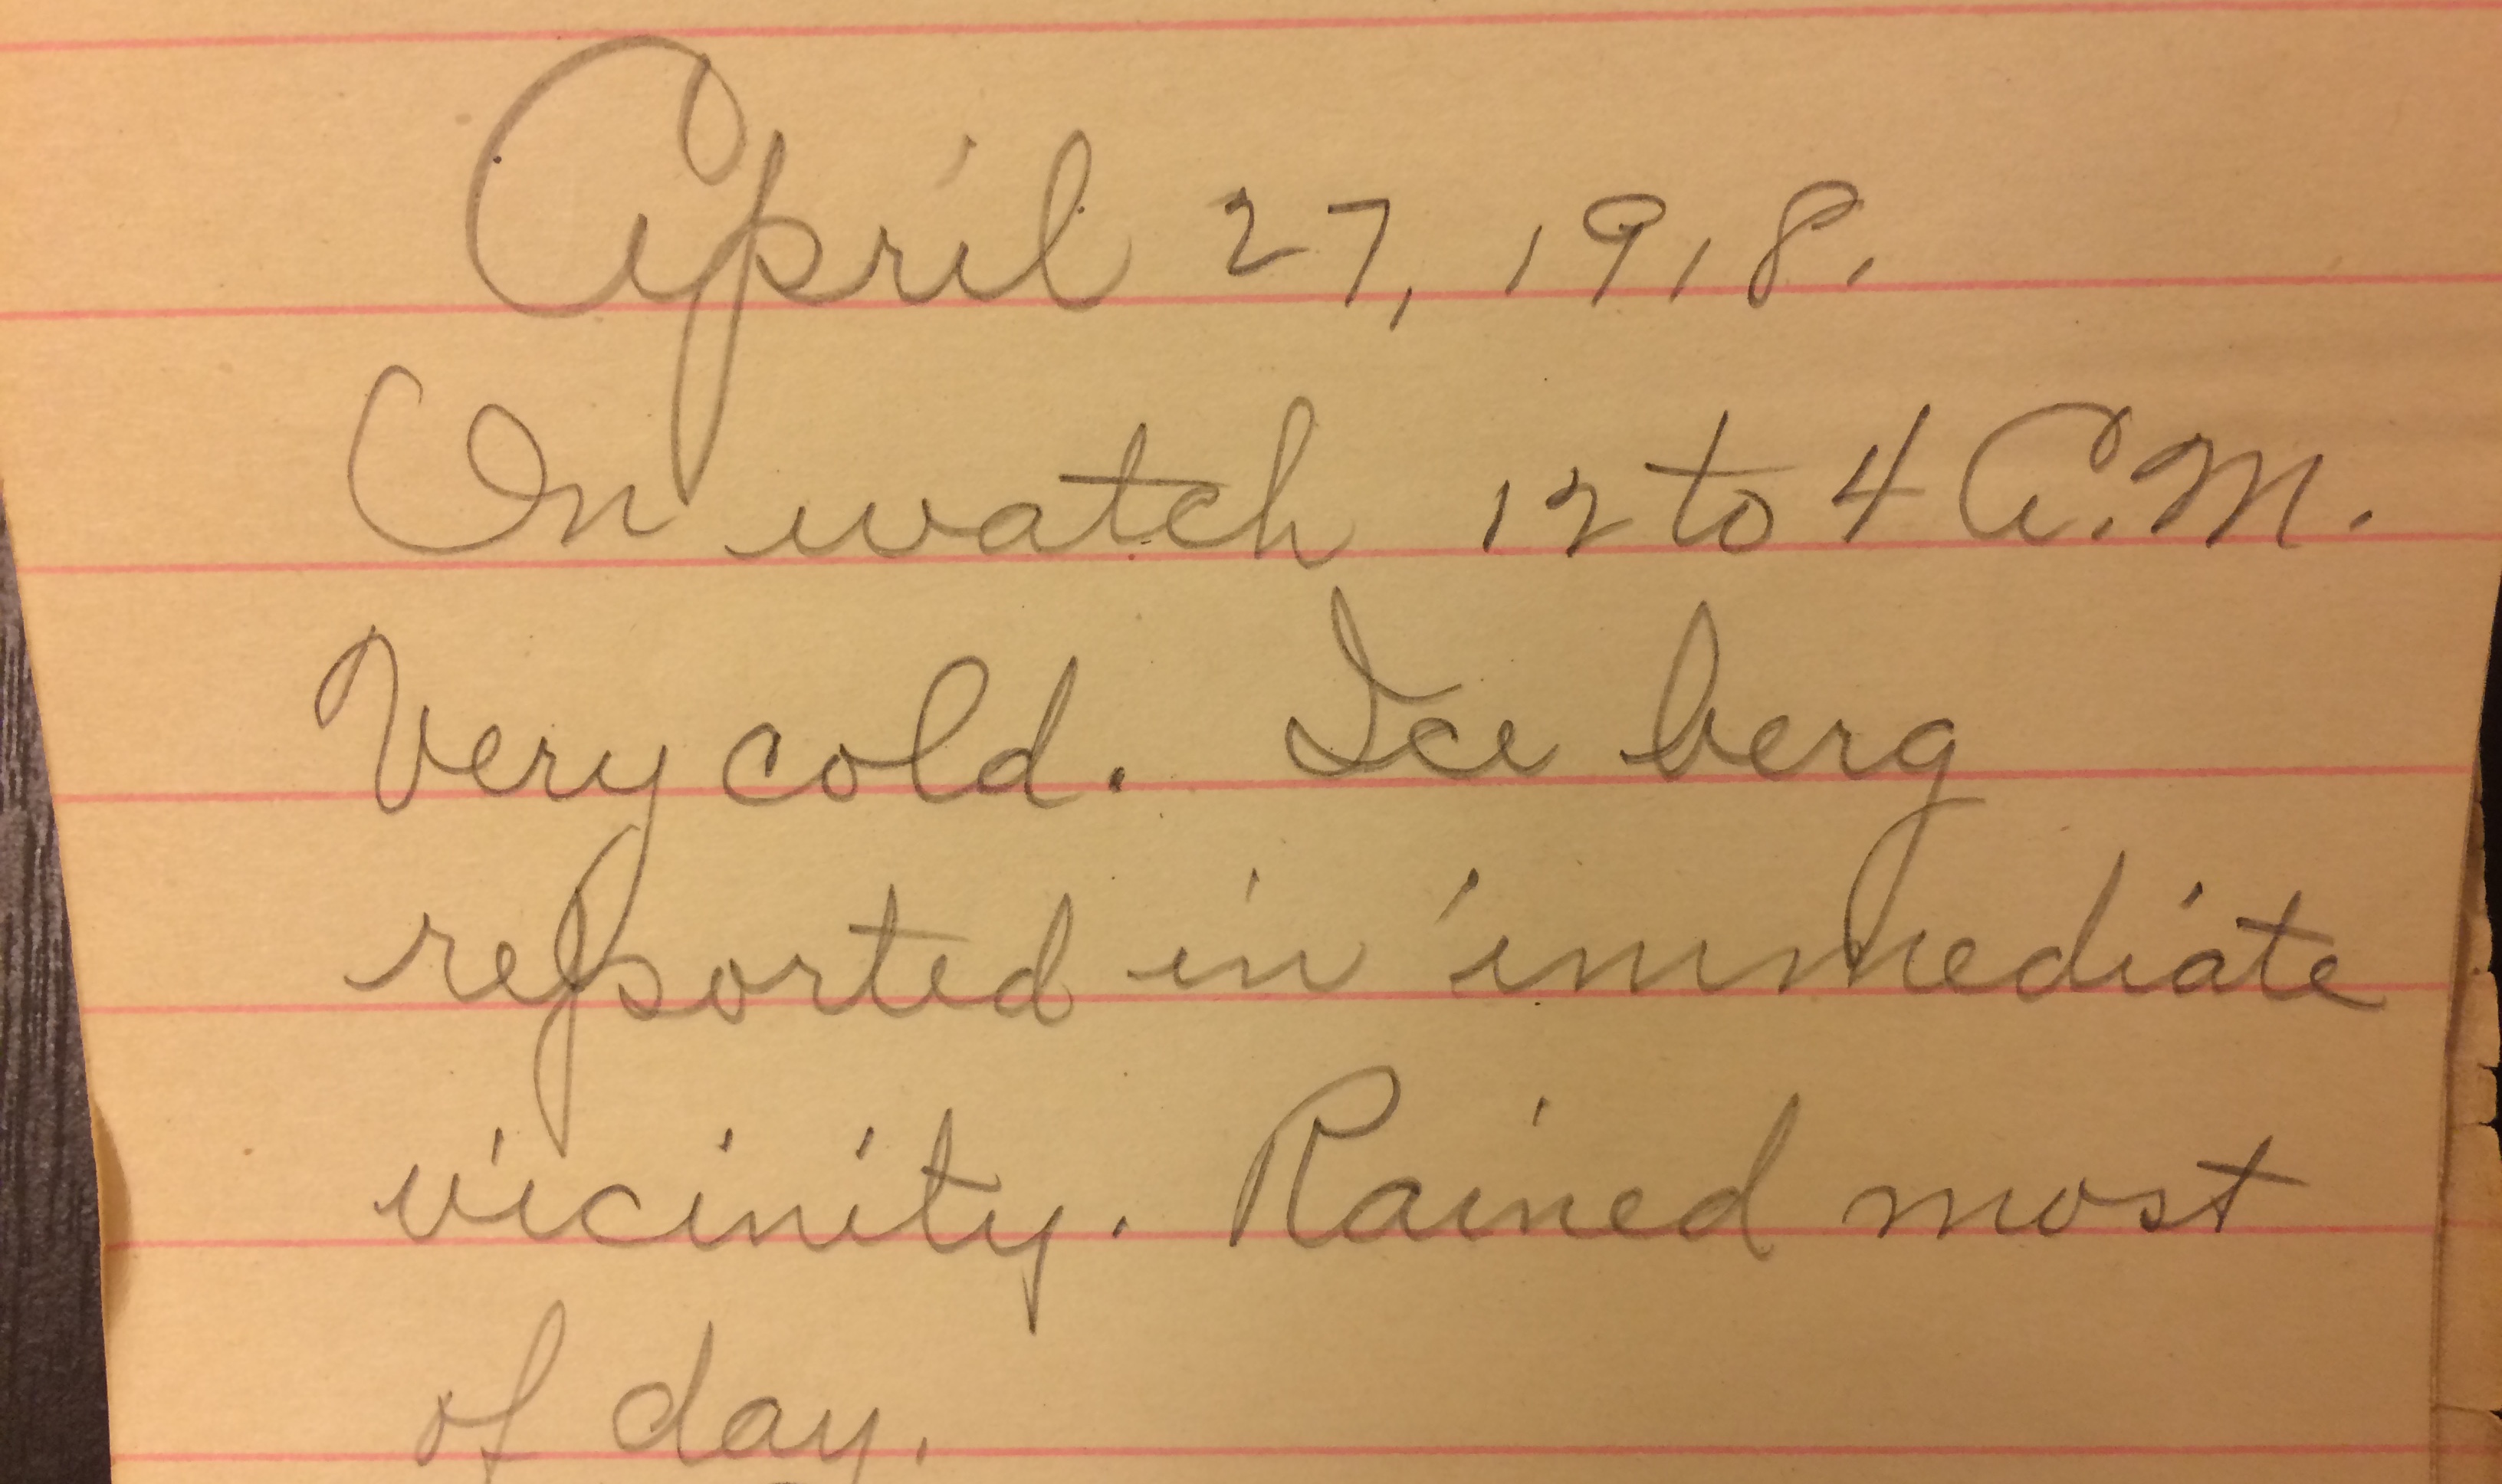 April 27, 1918.
On watch 12 to 4 A.M.
Very cold. Ice berg
reported in immediate
vicinity. Rained most
of day.